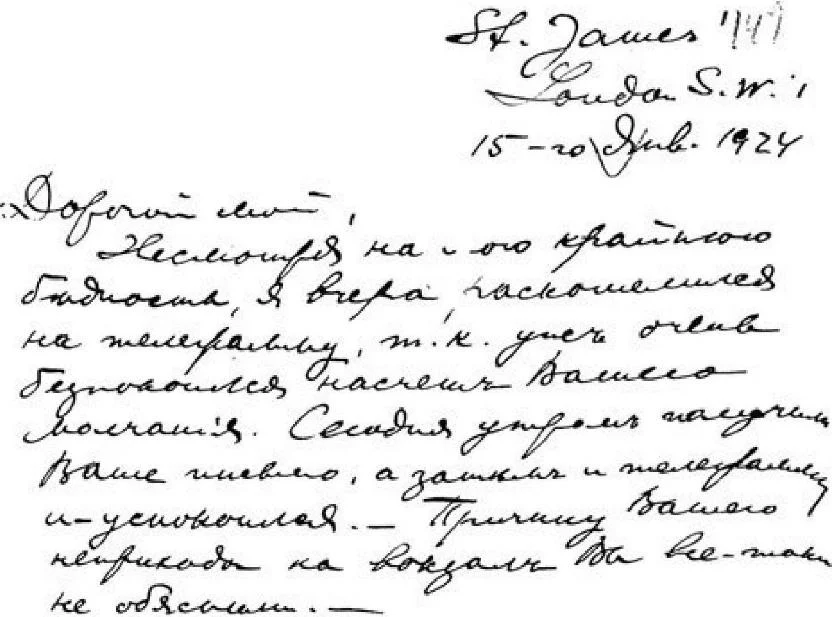 St. James
London S.W.1
15-го Янв. 1924
Дорогой мой,
Несмотря на мою крайнюю
бѣдность, я вчера раскошелился
на телеграмму, т.к. ужъ очень
безпокоился насчетъ Вашего
молчанія. Сегодня утромъ получилъ
Ваше письмо, а затѣмъ и телеграмму
и - успокоился. — Причину Вашего
неприхода на вокзалъ Вы все-таки
не объяснили. —